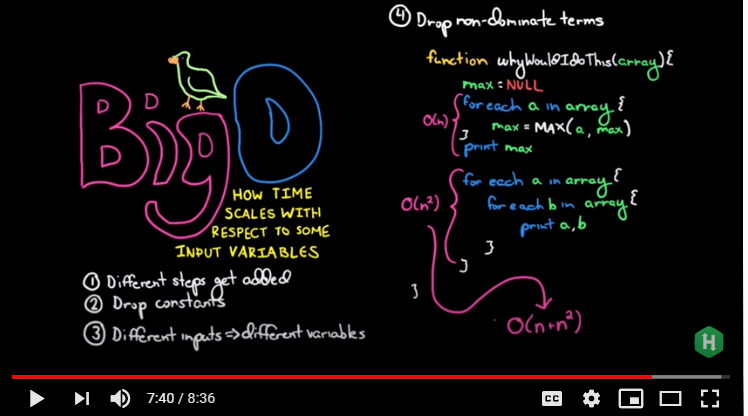 Big O
HOW TIME
SCALES WITH
RESPECT TO SOME
INPUT VARIABLES
① Different steps get added
② Drop constants
③ Different inputs ⇒ different variables
④ Drop non-dominate terms
function whyWouldIdoThis(array){
max = NULL
O(n)
for each a in array {
max = MAX(a, max)
}
print max
O(n²)
for each a in array {
for each b in array {
print a, b
}
}
}
O(n+n²)
H
7:40 / 8:36
CC